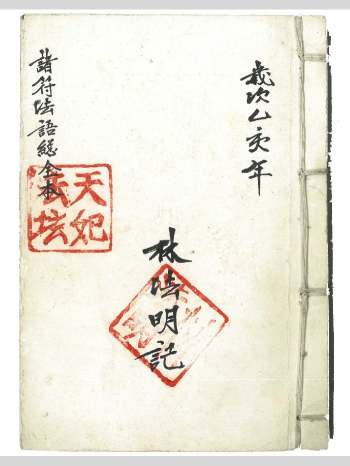 歲次乙亥年
林法明記
諸符法語總全本
天妃
法坛